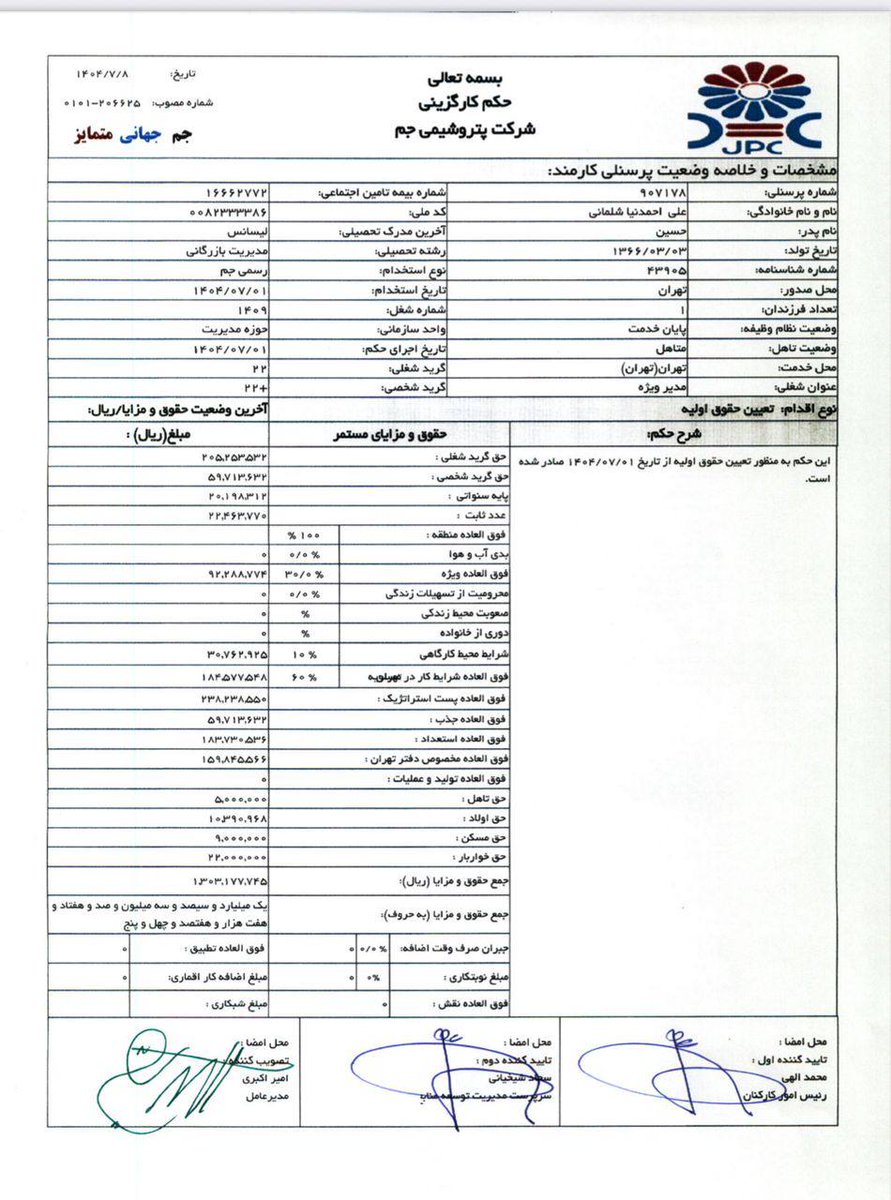 بسمه تعالی
حکم کارگزینی
شرکت پتروشیمی جم
JPC
تاریخ: ۱۴۰۴/۷/۸
شماره مصوب: ۲۰۶۶۲۵-۰۱۰۱
جم جهانی متمایز
مشخصات و خلاصه وضعیت پرسنلی کارمند:
شماره پرسنلی: ۹۰۷۱۷۸ شماره بیمه تامین اجتماعی: ۱۶۶۶۲۷۷۲
نام و نام خانوادگی: علی احمدنیا شلمانی کد ملی: ۰۰۸۲۳۳۳۳۸۶
نام پدر: حسین آخرین مدرک تحصیلی: لیسانس
تاریخ تولد: ۱۳۶۶/۰۳/۰۳ رشته تحصیلی: مدیریت بازرگانی
شماره شناسنامه: ۴۳۹۰۵ نوع استخدام: رسمی جم
محل صدور: تهران تاریخ استخدام: ۱۴۰۴/۰۷/۰۱
تعداد فرزندان: ۱ شماره شغل: ۱۴۰۹
وضعیت نظام وظیفه: پایان خدمت واحد سازمانی: حوزه مدیریت
وضعیت تاهل: متاهل تاریخ اجرای حکم: ۱۴۰۴/۰۷/۰۱
محل خدمت: تهران(تهران) گرید شغلی: ۲۲
عنوان شغلی: مدیر ویژه گرید شخصی: ۲۲+
نوع اقدام: تعیین حقوق اولیه آخرین وضعیت حقوق و مزایا/ریال:
شرح حکم: حقوق و مزایای مستمر مبلغ(ریال) :
این حکم به منظور تعیین حقوق اولیه از تاریخ ۱۴۰۴/۰۷/۰۱ صادر شده
است.
حق گرید شغلی : ۲۰۵,۲۵۳,۵۳۲
حق گرید شخصی : ۵۹,۷۱۳,۶۳۲
پایه سنواتی : ۲۰,۱۹۸,۳۱۲
عدد ثابت : ۲۲,۴۶۳,۷۷۰
فوق العاده منطقه : ۱۰۰ %
بدی آب و هوا ۰/۰ % ۰
فوق العاده ویژه ۳۰/۰ % ۹۲,۲۸۸,۷۷۴
محرومیت از تسهیلات زندگی ۰/۰ % ۰
صعوبت محیط زندگی % ۰
دوری از خانواده % ۰
شرایط محیط کارگاهی ۱۰ % ۳۰,۷۶۲,۹۲۵
فوق العاده شرایط کار در ۶۰ % ۱۸۴,۵۷۷,۵۴۸
فوق العاده پست استراتژیک : ۲۳۸,۲۳۸,۵۵۰
فوق العاده جذب : ۵۹,۷۱۳,۶۳۲
فوق العاده استعداد : ۱۸۳,۷۳۰,۵۳۶
فوق العاده مخصوص دفتر تهران : ۱۵۹,۸۴۵,۵۶۶
فوق العاده تولید و عملیات : ۰
حق تاهل : ۵,۰۰۰,۰۰۰
حق اولاد : ۱۰,۳۹۰,۹۶۸
حق مسکن : ۹,۰۰۰,۰۰۰
حق خواربار : ۲۲,۰۰۰,۰۰۰
جمع حقوق و مزایا (ریال): ۱,۳۰۳,۱۷۷,۷۴۵
جمع حقوق و مزایا (به حروف): یک میلیارد و سیصد و سه میلیون و صد و هفتاد و
هفت هزار و هفتصد و چهل و پنج
جبران صرف وقت اضافه: ۰/۰ % ۰ فوق العاده تطبیق : ۰
مبلغ نوبتکاری : ۰% ۰ مبلغ اضافه کار اقماری: ۰
فوق العاده نقش : ۰ مبلغ شبکاری :
محل امضا :
تایید کننده اول :
محمد الهی
رئیس امور کارکنان
محل امضا :
تایید کننده دوم :
سجاد شیخیانی
سرپرست مدیریت توسعه منابع
محل امضا :
تصویب کننده :
امیر اکبری
مدیرعامل